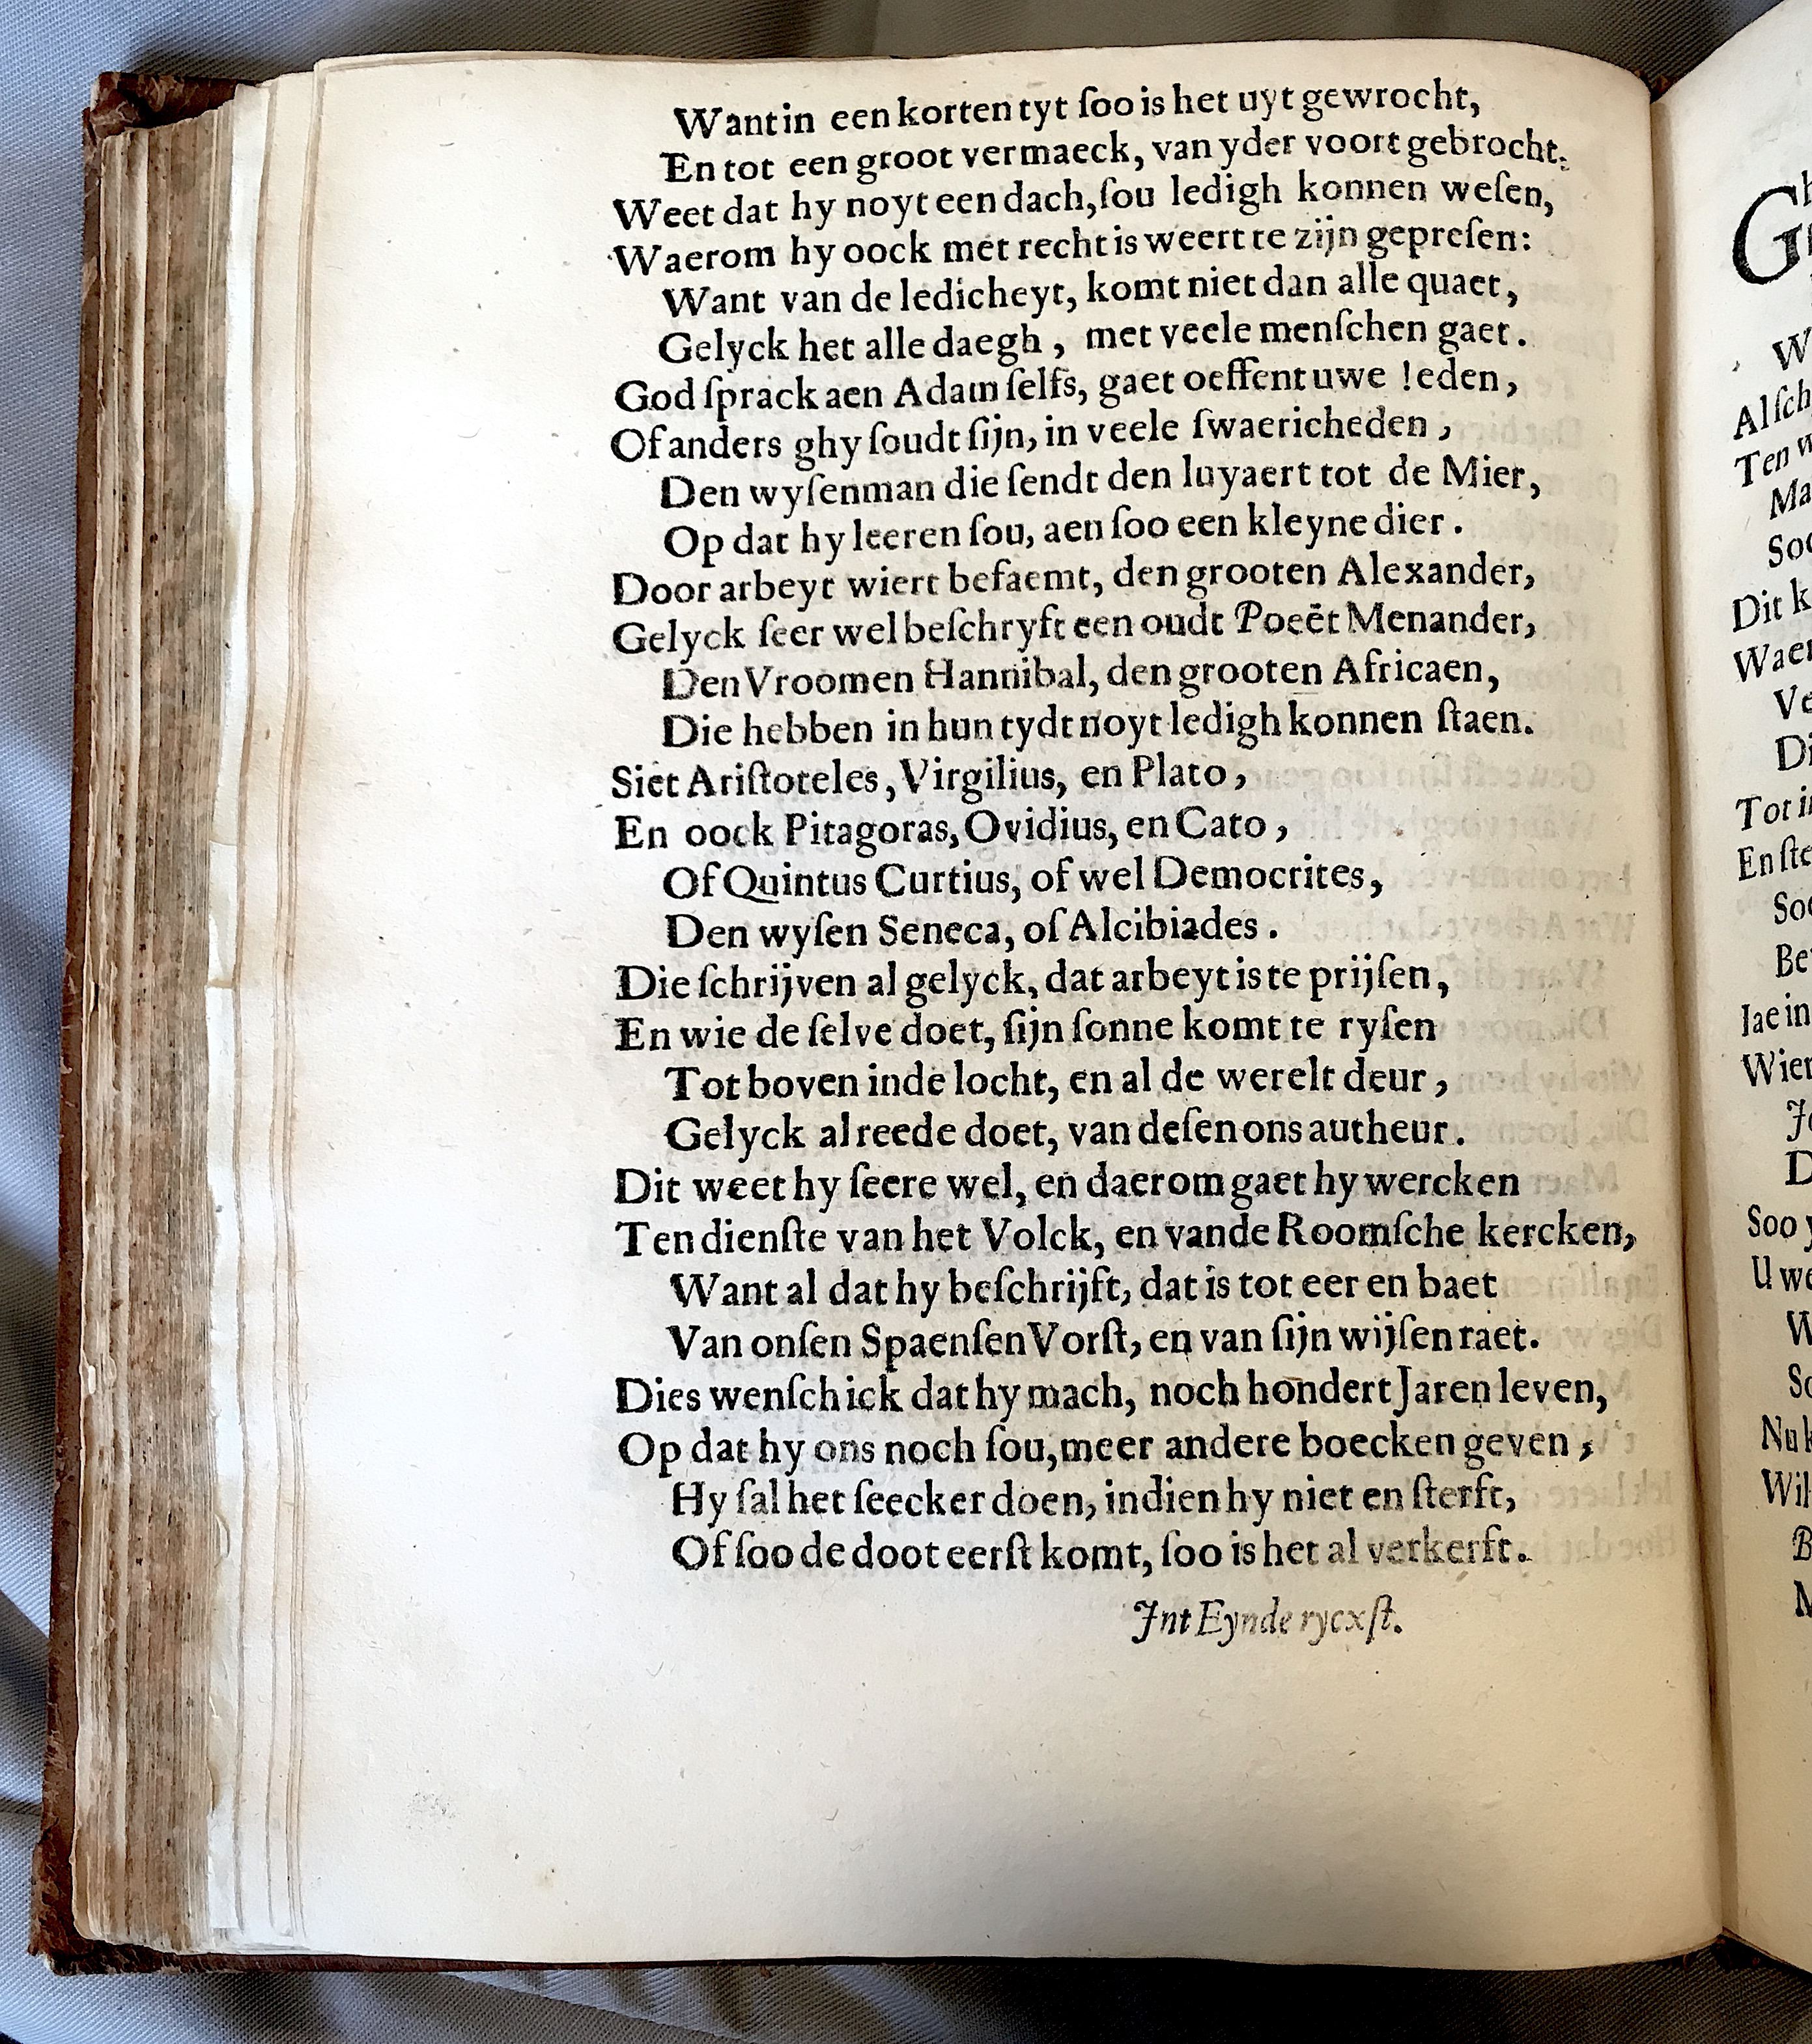 Want in een korten tyt ſoo is het uyt gewrocht,
En tot een groot vermaeck, van yder voort gebrocht.
Weet dat hy noyt een dach, ſou ledigh konnen weſen,
Waerom hy oock met recht is weert te zijn gepreſen:
Want van de ledicheyt, komt niet dan alle quaet,
Gelyck het alle daegh, met veele menſchen gaet.
God ſprack aen Adam ſelfs, gaet oeffent uwe leden,
Of anders ghy ſoudt ſijn, in veele ſwaericheden,
Den wyſenman die ſendt den luyaert tot de Mier,
Op dat hy leeren ſou, aen ſoo een kleyne dier.
Door arbeyt wiert befaemt, den grooten Alexander,
Gelyck ſeer wel beſchryft een oudt Poeët Menander,
Den Vroomen Hannibal, den grooten Africaen,
Die hebben in hun tydt noyt ledigh konnen ſtaen.
Siet Ariſtoteles, Virgilius, en Plato,
En oock Pitagoras, Ovidius, en Cato,
Of Quintus Curtius, of wel Democrites,
Den wyſen Seneca, of Alcibiades.
Die ſchrijven al gelyck, dat arbeyt is te prijſen,
En wie de ſelve doet, ſijn ſonne komt te ryſen
Tot boven inde locht, en al de werelt deur,
Gelyck alreede doet, van deſen ons autheur.
Dit weet hy ſeere wel, en daerom gaet hy wercken
Ten dienſte van het Volck, en vande Roomſche kercken,
Want al dat hy beſchrijft, dat is tot eer en baet
Van onſen Spaenſen Vorſt, en van ſijn wijſen raet.
Dies wenſch ick dat hy mach, noch hondert Jaren leven,
Op dat hy ons noch ſou, meer andere boecken geven,
Hy ſal het ſeecker doen, indien hy niet en ſterft,
Of ſoo de doot eerſt komt, ſoo is het al verkerft.
Jnt Eynde rycxſt.
Alſch
Ten w
Ma
Soo
Dit k
Waer
Ve
Di
Tot in
En ſte
Soo
Be
Iae in
Wier
Soo y
U we
Nu k
Wil